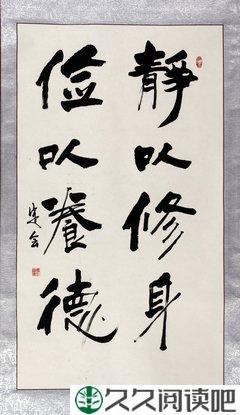 靜以修身
儉以養德
久久阅读吧